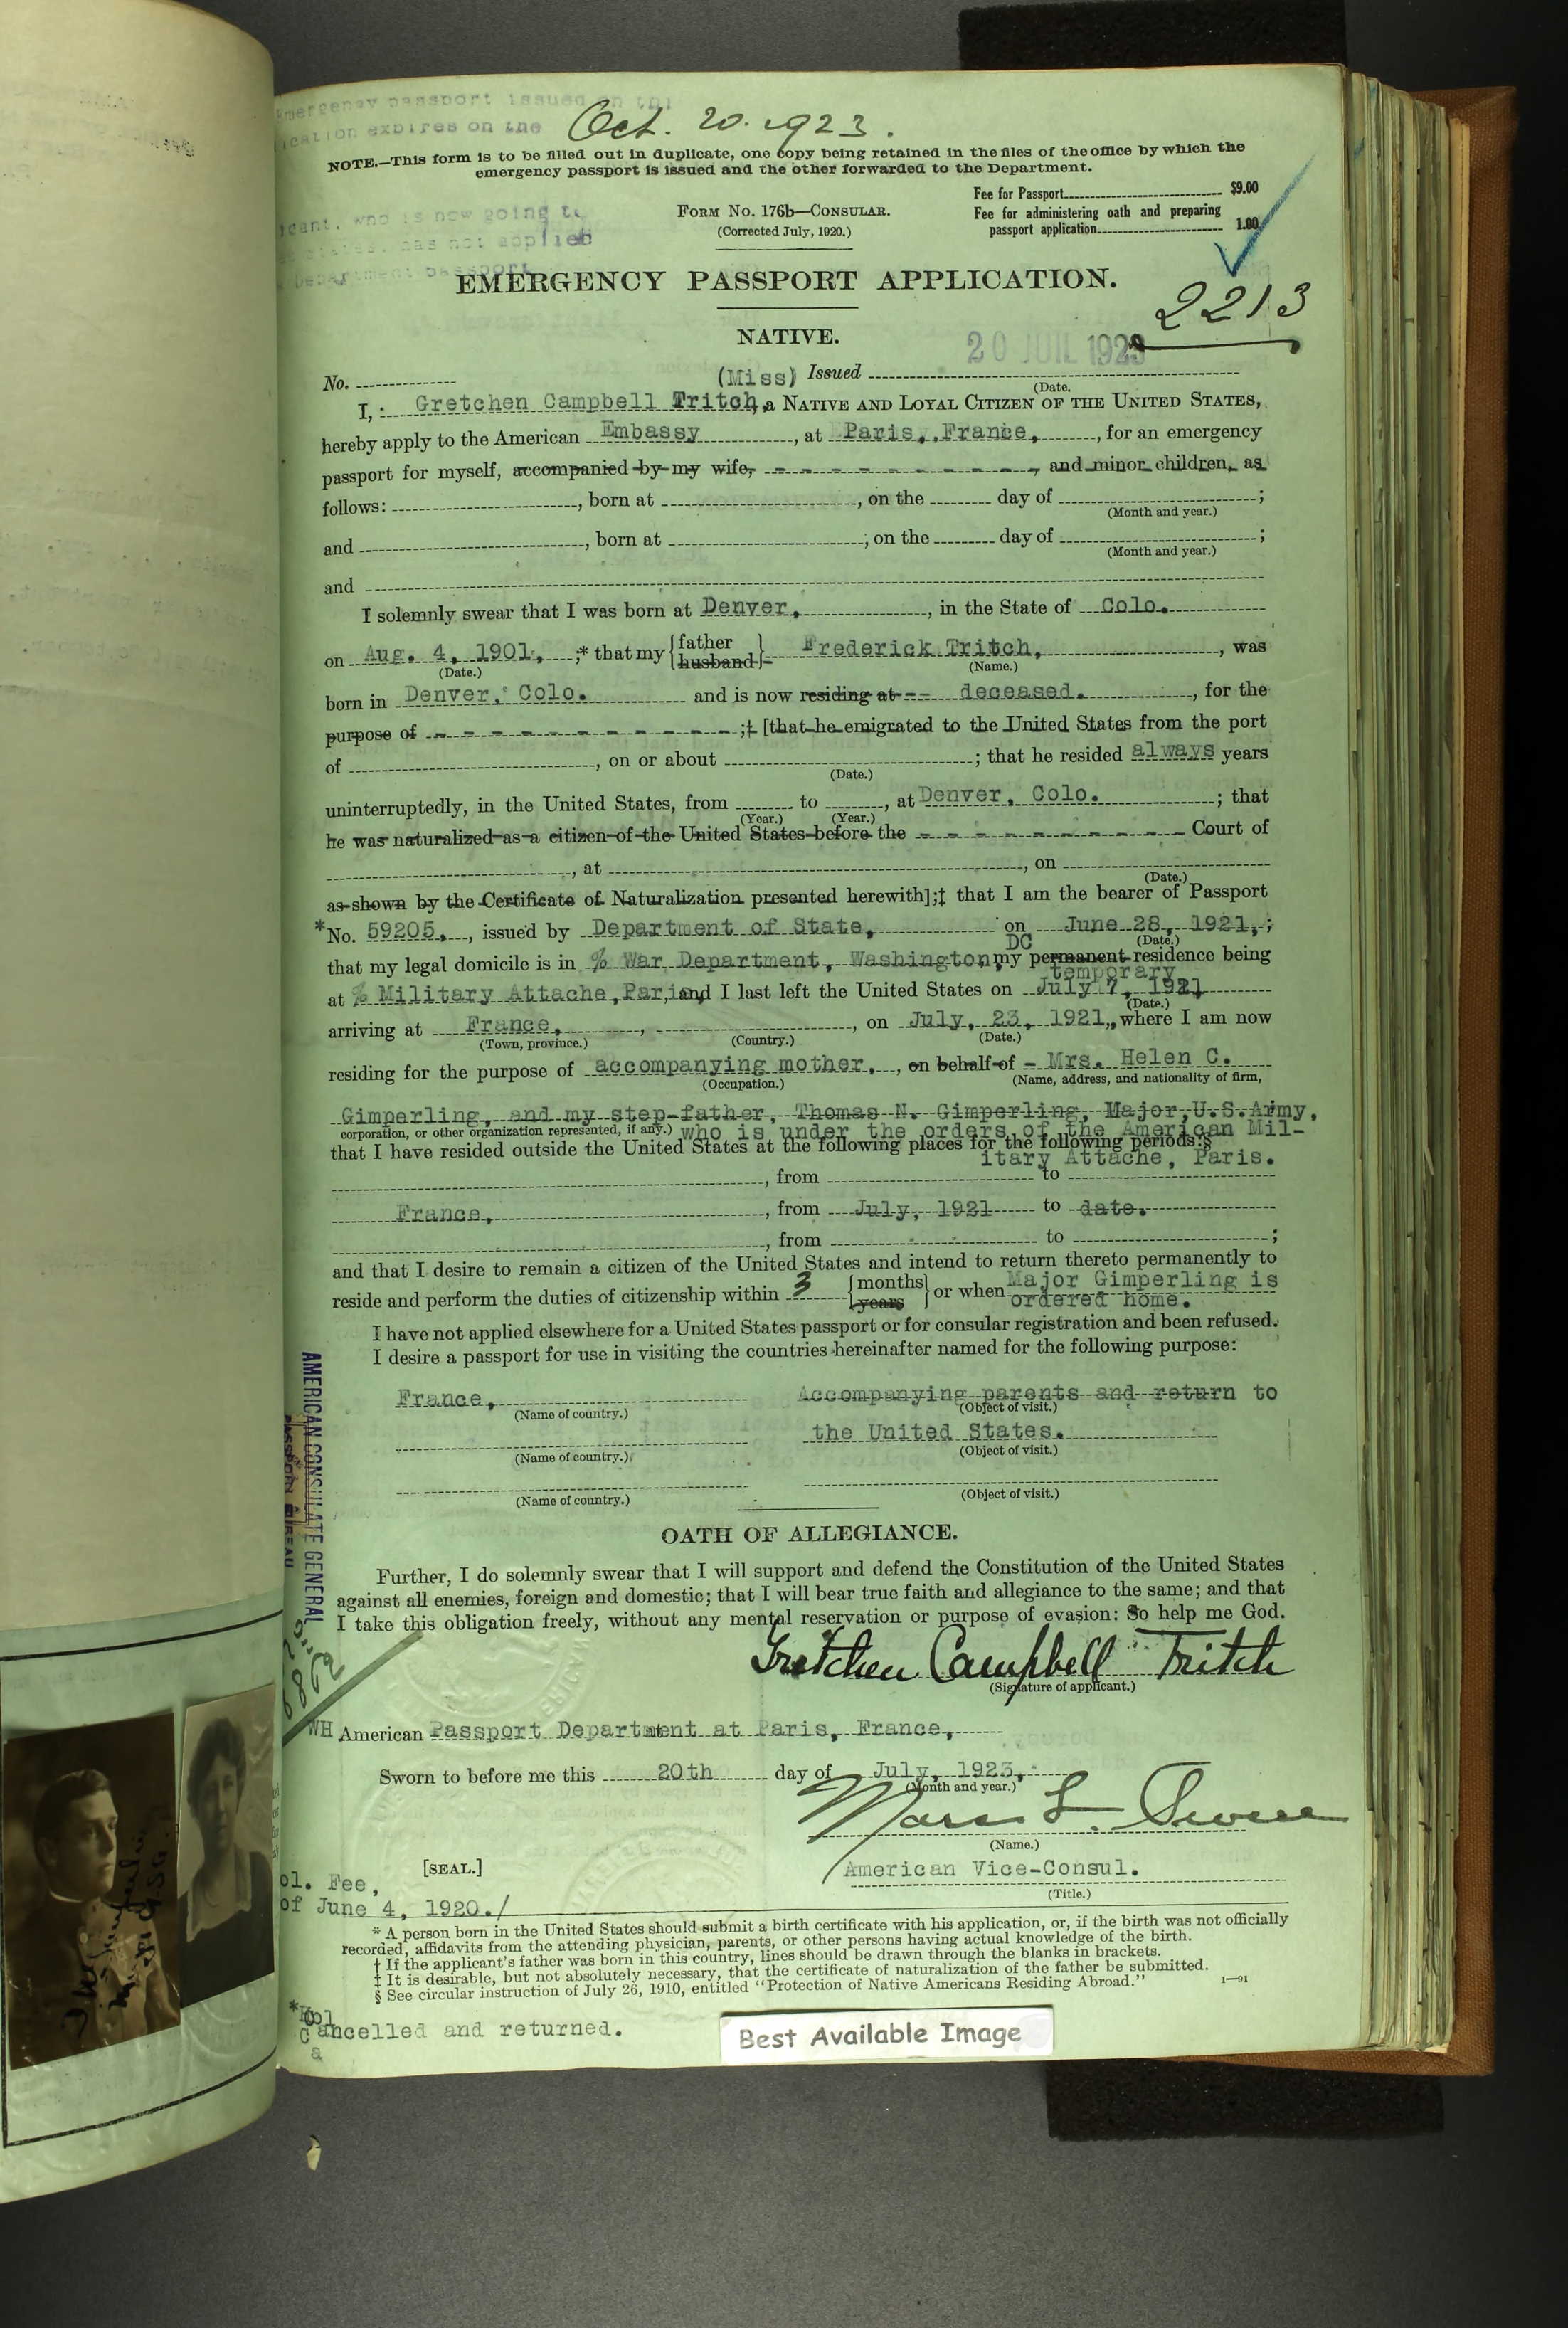 Emergency passport issued on thi
ication expires on the Oct. 20. 1923.
NOTE.—This form is to be filled out in duplicate, one copy being retained in the files of the office by which the
emergency passport is issued and the other forwarded to the Department.
Fee for Passport $9.00
Fee for administering oath and preparing
passport application 1.00
FORM No. 176b—CONSULAR.
(Corrected July, 1920.)
icant, who is now going to
has not applied
Department passport
EMERGENCY PASSPORT APPLICATION.
2213
NATIVE.
20 JUIL 1923
No. (Miss) Issued
(Date.
I, Gretchen Campbell Tritch, a NATIVE AND LOYAL CITIZEN OF THE UNITED STATES,
hereby apply to the American Embassy, at Paris, France, for an emergency
passport for myself, accompanied by my wife, and minor children, as
follows: , born at , on the day of ;
(Month and year.)
and , born at ; on the day of ;
(Month and year.)
and
I solemnly swear that I was born at Denver, , in the State of Colo.
on Aug. 4, 1901, ;* that my {father husband} Frederick Tritch, , was
(Date.) (Name.)
born in Denver, Colo. and is now residing at -- deceased. , for the
purpose of - - - - - - - - - - ;‡ [that he emigrated to the United States from the port
of , on or about ; that he resided always years
(Date.)
uninterruptedly, in the United States, from to , at Denver, Colo. ; that
(Year.) (Year.)
he was naturalized as a citizen of the United States before the - - - - - - - - - Court of
, at , on
(Date.)
as shown by the Certificate of Naturalization presented herewith];‡ that I am the bearer of Passport
*No. 59205, , issued by Department of State, on June 28, 1921, ;
DC (Date.)
that my legal domicile is in % War Department, Washington, my permanent residence being
temporary
at % Military Attache, Paris, and I last left the United States on July 7, 1921
(Date.)
arriving at France, , , on July, 23, 1921, where I am now
(Town, province.) (Country.) (Date.)
residing for the purpose of accompanying mother, , on behalf of - Mrs. Helen C.
(Occupation.) (Name, address, and nationality of firm,
Gimperling, and my step-father, Thomas N. Gimperling, Major, U.S.Army,
corporation, or other organization represented, if any.) who is under the orders of the American Mil-
that I have resided outside the United States at the following places for the following periods:§
itary Attache, Paris.
, from to
France, , from July, 1921 to date.
, from to ;
and that I desire to remain a citizen of the United States and intend to return thereto permanently to
reside and perform the duties of citizenship within 3 {months years} or when Major Gimperling is
ordered home.
I have not applied elsewhere for a United States passport or for consular registration and been refused.
I desire a passport for use in visiting the countries hereinafter named for the following purpose:
France, Accompanying parents and return to
(Name of country.) (Object of visit.)
the United States.
(Name of country.) (Object of visit.)
(Name of country.) (Object of visit.)
AMERICAN CONSULATE GENERAL
PASSPORT BUREAU
OATH OF ALLEGIANCE.
Further, I do solemnly swear that I will support and defend the Constitution of the United States
against all enemies, foreign and domestic; that I will bear true faith and allegiance to the same; and that
I take this obligation freely, without any mental reservation or purpose of evasion: So help me God.
Gretchen Campbell Tritch
(Signature of applicant.)
WH American Passport Department at Paris, France,
Sworn to before me this 20th day of July, 1923,
(Month and year.)
(Name.)
[SEAL.]
American Vice-Consul.
(Title.)
ol. Fee,
of June 4, 1920./
* A person born in the United States should submit a birth certificate with his application, or, if the birth was not officially
recorded, affidavits from the attending physician, parents, or other persons having actual knowledge of the birth.
† If the applicant's father was born in this country, lines should be drawn through the blanks in brackets.
‡ It is desirable, but not absolutely necessary, that the certificate of naturalization of the father be submitted.
§ See circular instruction of July 26, 1910, entitled "Protection of Native Americans Residing Abroad."
1—91
Cancelled and returned.
Best Available Image